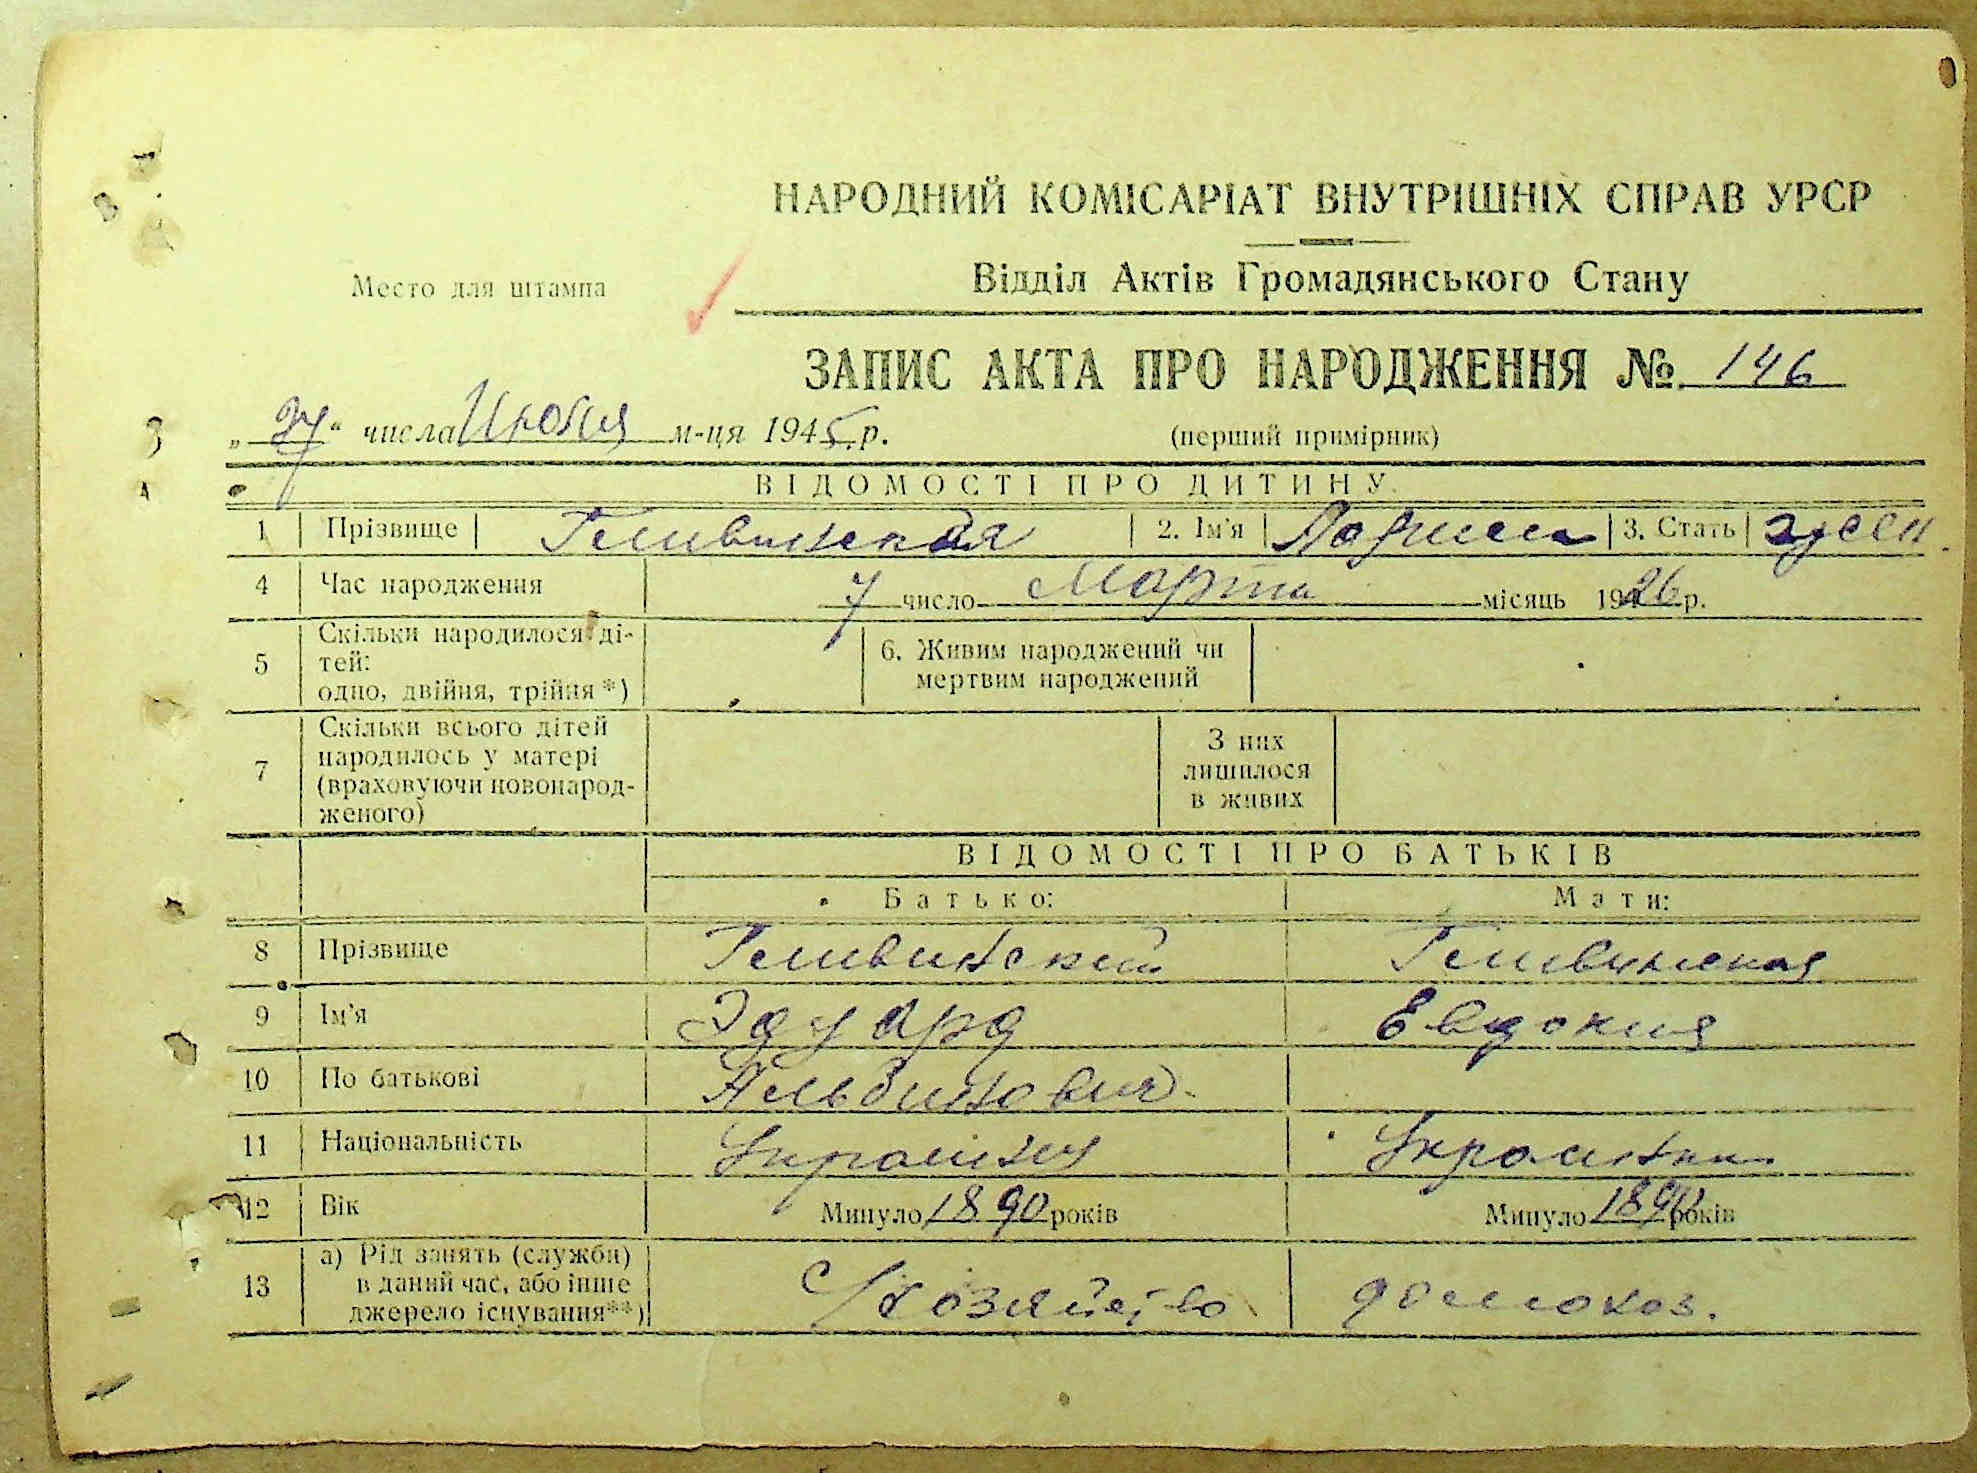 НАРОДНИЙ КОМІСАРІАТ ВНУТРІШНІХ СПРАВ УРСР
Место для штампа
Відділ Актів Громадянського Стану
ЗАПИС АКТА ПРО НАРОДЖЕННЯ № 146
„27“ числа Июля м-ця 1945 р.
(перший примірник)
ВІДОМОСТІ ПРО ДИТИНУ
1 Прізвище 2. Ім'я Лариса 3. Стать жен.
4 Час народження 7 число Марта місяць 1926 р.
5 Скільки народилося ді-
тей:
одно, двійня, трійня*)
6. Живим народжений чи
мертвим народжений
7 Скільки всього дітей
народилось у матері
(враховуючи новонарод-
женого)
З них
лишилося
в живих
ВІДОМОСТІ ПРО БАТЬКІВ
Батько: Мати:
8 Прізвище
9 Ім'я Эдуард Евдокия
10 По батькові Альбинович
11 Національність
12 Вік Минуло 1890 років Минуло 1890 років
13 а) Рід занять (служби)
в даний час, або інше
джерело існування**)
С/хозяйство домохоз.